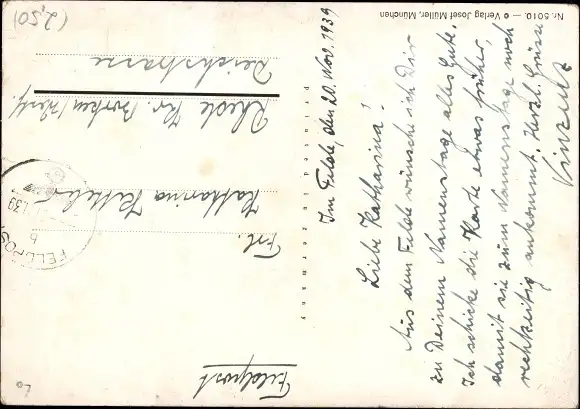 Im Felde, den 20. Nov. 1939
Liebe Katharina!
Aus dem Felde wünsche ich Dir
zu Deinem Namenstage alles Gute.
Ich schicke die Karte etwas früher,
damit sie zum Namenstage noch
rechtzeitig ankommt. Herzl. Grüsse
Vinzenz
Feldpost
Frl.
Katharina
Rhede Kr. Borken/Westf.
Deichstrasse
FELDPOST
b
39
printed in germany
Nr. 5010. — © Verlag Josef Müller, München
(2,50)